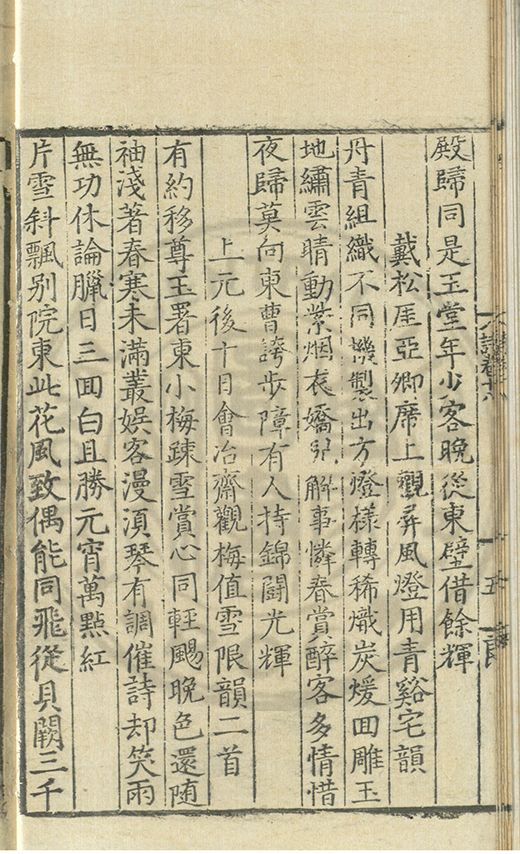 殿歸同是玉堂年少客晚從東壁借餘輝
戴松厓亞卿席上觀屏風燈用青谿宅韻
丹青組織不同機製出方燈樣轉稀熾炭煖回雕玉
地繡雲晴動紫烟衣嬌兒解事憐春賞醉客多情惜
夜歸莫向東曹誇步障有人持錦鬬光輝
上元後十日會冶齋觀梅值雪限韻二首
有約移尊玉署東小梅疎雪賞心同輕颺晚色還随
袖淺著春寒未滿叢娛客漫湏琴有調催詩却笑雨
無功休論臘日三回白且勝元宵萬點紅
片雪斜飄別院東此花風致偶能同飛從貝闕三千